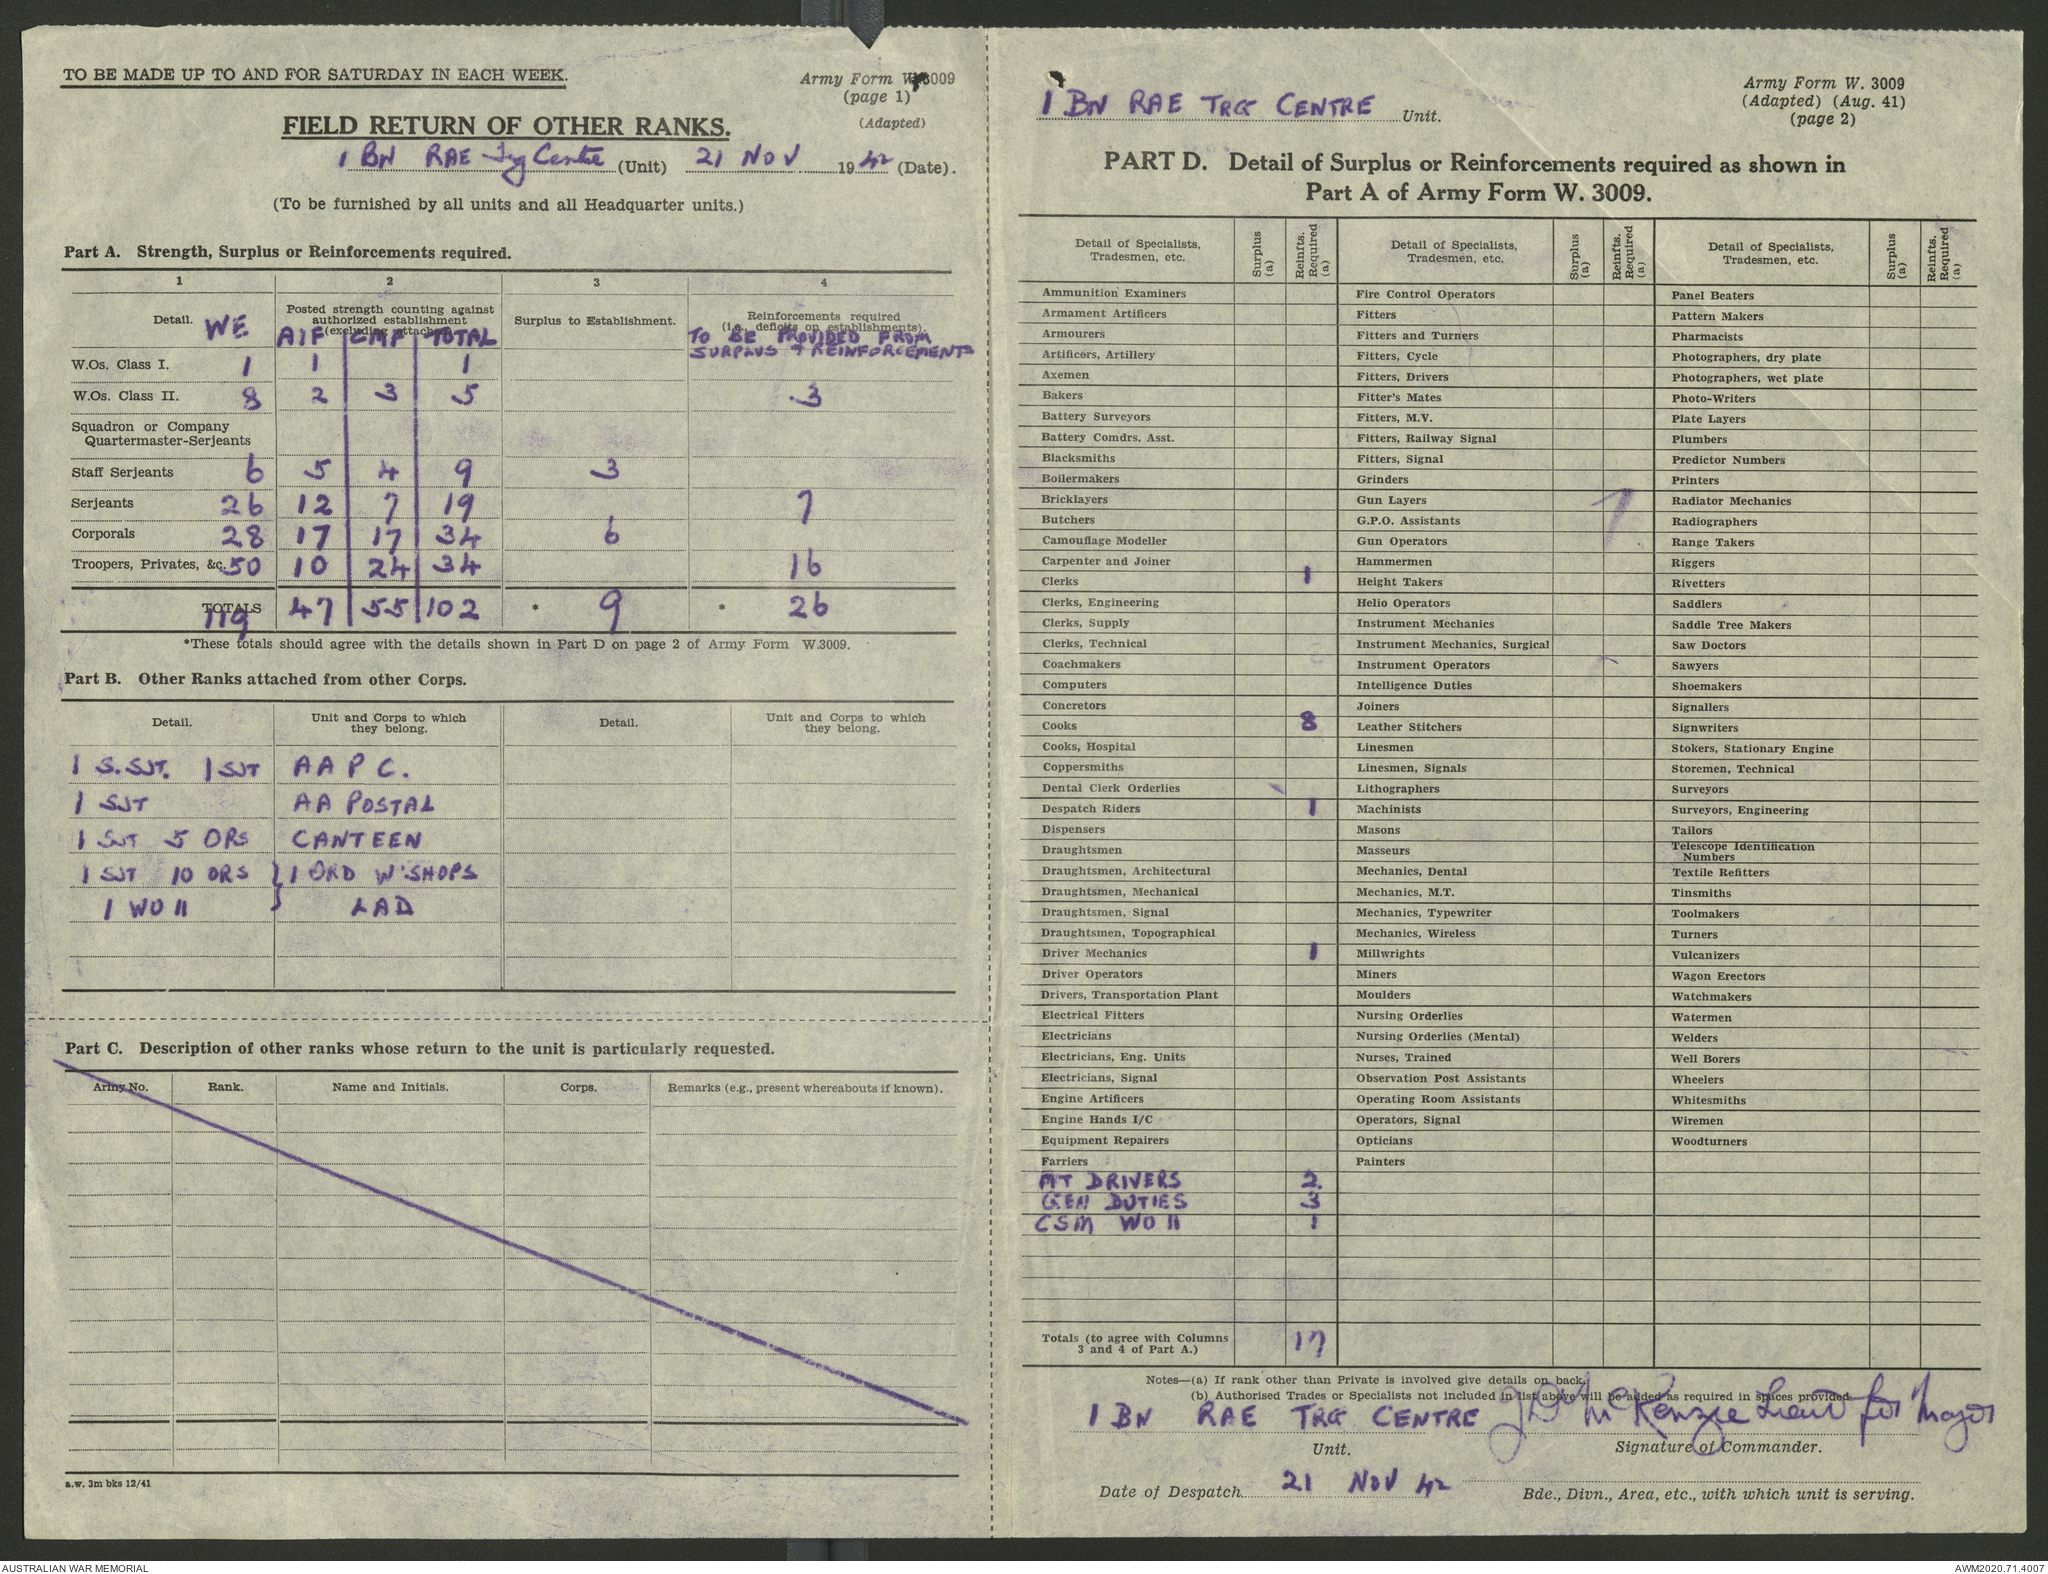 TO BE MADE UP TO AND FOR SATURDAY IN EACH WEEK.
Army Form W.3009
(page 1)
(Adapted)
FIELD RETURN OF OTHER RANKS.
1 BN RAE Trg Centre (Unit) 21 NOV 1942 (Date).
(To be furnished by all units and all Headquarter units.)
Part A. Strength, Surplus or Reinforcements required.
1 2 3 4
Detail. WE
Posted strength counting against
authorized establishment
(excluding attached)
AIF CMF TOTAL
Surplus to Establishment.
Reinforcements required
(i.e., deficits on establishments).
TO BE PROVIDED FROM
SURPLUS & REINFORCEMENTS
W.Os. Class I. 1 1 1
W.Os. Class II. 8 2 3 5 3
Squadron or Company
Quartermaster-Serjeants
Staff Serjeants 6 5 4 9 3
Serjeants 26 12 7 19 7
Corporals 28 17 17 34 6
Troopers, Privates, &c. 50 10 24 34 16
TOTALS 119 47 55 102 * 9 * 26
*These totals should agree with the details shown in Part D on page 2 of Army Form W.3009.
Part B. Other Ranks attached from other Corps.
Detail.
Unit and Corps to which
they belong.
Detail.
Unit and Corps to which
they belong.
1 S.SJT. 1 SJT AAPC.
1 SJT AA POSTAL
1 SJT 5 ORS CANTEEN
1 SJT 10 ORS } 1 ORD W'SHOPS
1 WO II } LAD
Part C. Description of other ranks whose return to the unit is particularly requested.
Army No. Rank. Name and Initials. Corps. Remarks (e.g., present whereabouts if known).
a.w. 3m bks 12/41
1 BN RAE TRG CENTRE Unit.
Army Form W. 3009
(Adapted) (Aug. 41)
(page 2)
PART D. Detail of Surplus or Reinforcements required as shown in
Part A of Army Form W. 3009.
Detail of Specialists,
Tradesmen, etc.
Surplus
(a)
Reinfts.
Required
(a)
Ammunition Examiners
Armament Artificers
Armourers
Artificers, Artillery
Axemen
Bakers
Battery Surveyors
Battery Comdrs. Asst.
Blacksmiths
Boilermakers
Bricklayers
Butchers
Camouflage Modeller
Carpenter and Joiner
Clerks 1
Clerks, Engineering
Clerks, Supply
Clerks, Technical
Coachmakers
Computers
Concretors
Cooks 8
Cooks, Hospital
Coppersmiths
Dental Clerk Orderlies
Despatch Riders 1
Dispensers
Draughtsmen
Draughtsmen, Architectural
Draughtsmen, Mechanical
Draughtsmen, Signal
Draughtsmen, Topographical
Driver Mechanics 1
Driver Operators
Drivers, Transportation Plant
Electrical Fitters
Electricians
Electricians, Eng. Units
Electricians, Signal
Engine Artificers
Engine Hands I/C
Equipment Repairers
Farriers
MT DRIVERS 2
GEN DUTIES 3
CSM WO II 1
Totals (to agree with Columns
3 and 4 of Part A.) 17
Detail of Specialists,
Tradesmen, etc.
Surplus
(a)
Reinfts.
Required
(a)
Fire Control Operators
Fitters
Fitters and Turners
Fitters, Cycle
Fitters, Drivers
Fitter's Mates
Fitters, M.V.
Fitters, Railway Signal
Fitters, Signal
Grinders
Gun Layers
G.P.O. Assistants
Gun Operators
Hammermen
Height Takers
Helio Operators
Instrument Mechanics
Instrument Mechanics, Surgical
Instrument Operators
Intelligence Duties
Joiners
Leather Stitchers
Linesmen
Linesmen, Signals
Lithographers
Machinists
Masons
Masseurs
Mechanics, Dental
Mechanics, M.T.
Mechanics, Typewriter
Mechanics, Wireless
Millwrights
Miners
Moulders
Nursing Orderlies
Nursing Orderlies (Mental)
Nurses, Trained
Observation Post Assistants
Operating Room Assistants
Operators, Signal
Opticians
Painters
Detail of Specialists,
Tradesmen, etc.
Surplus
(a)
Reinfts.
Required
(a)
Panel Beaters
Pattern Makers
Pharmacists
Photographers, dry plate
Photographers, wet plate
Photo-Writers
Plate Layers
Plumbers
Predictor Numbers
Printers
Radiator Mechanics
Radiographers
Range Takers
Riggers
Rivetters
Saddlers
Saddle Tree Makers
Saw Doctors
Sawyers
Shoemakers
Signallers
Signwriters
Stokers, Stationary Engine
Storemen, Technical
Surveyors
Surveyors, Engineering
Tailors
Telescope Identification
Numbers
Textile Refitters
Tinsmiths
Toolmakers
Turners
Vulcanizers
Wagon Erectors
Watchmakers
Watermen
Welders
Well Borers
Wheelers
Whitesmiths
Wiremen
Woodturners
Notes—(a) If rank other than Private is involved give details on back.
(b) Authorised Trades or Specialists not included in list above will be added as required in spaces provided.
1 BN RAE TRG CENTRE McKenzie Lieut for Major
Unit. Signature of Commander.
Date of Despatch 21 NOV 42
Bde., Divn., Area, etc., with which unit is serving.
AUSTRALIAN WAR MEMORIAL
AWM2020.71.4007